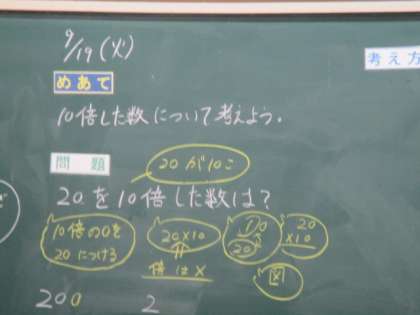 9/19(火)
考え方
めあて
10倍した数について考えよう。
問題
20が10こ
20を10倍した数は?
10倍の0を
20につける
20×10
倍は×
10
20
20
×10
図
200
2